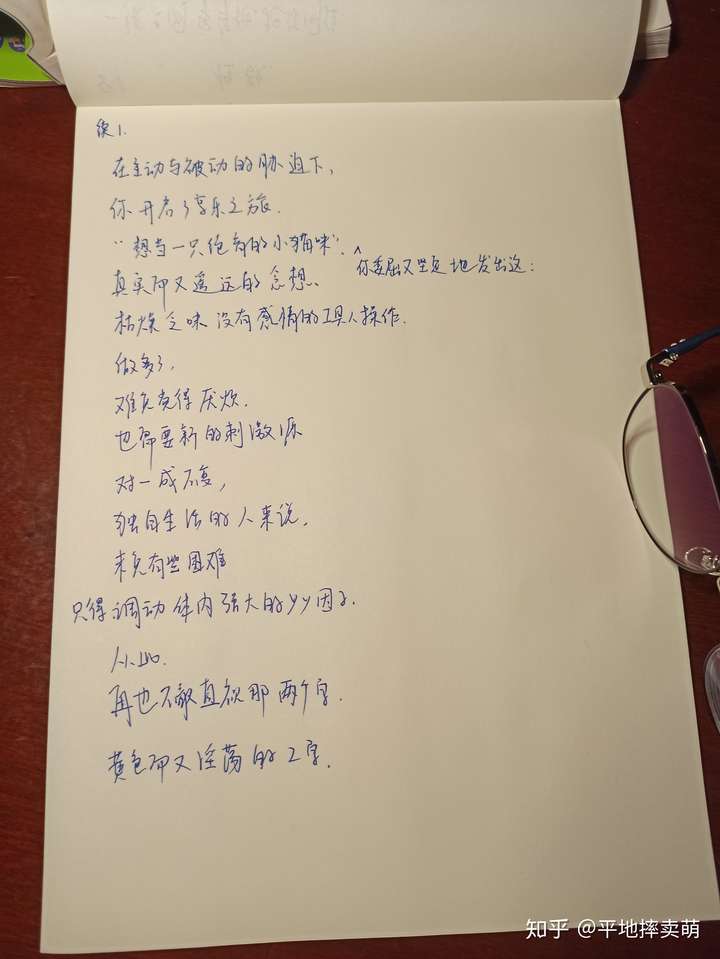 续1.
在主动与被动的胁迫下,
你开启了享乐之旅.
"想当一只绝育的小猫咪". ^你委屈又坚定地发出这:
真实而又遥远的念想.
枯燥乏味没有感情的工具人操作.
做多了,
难免觉得厌烦.
也需要新的刺激源
对一成不变,
独自生活的人来说.
未免有些困难
只得调动体内强大的yy因子.
从此.
再也不敢直视那两个字.
黄色而又淫荡的2字.
知乎 @平地摔卖萌